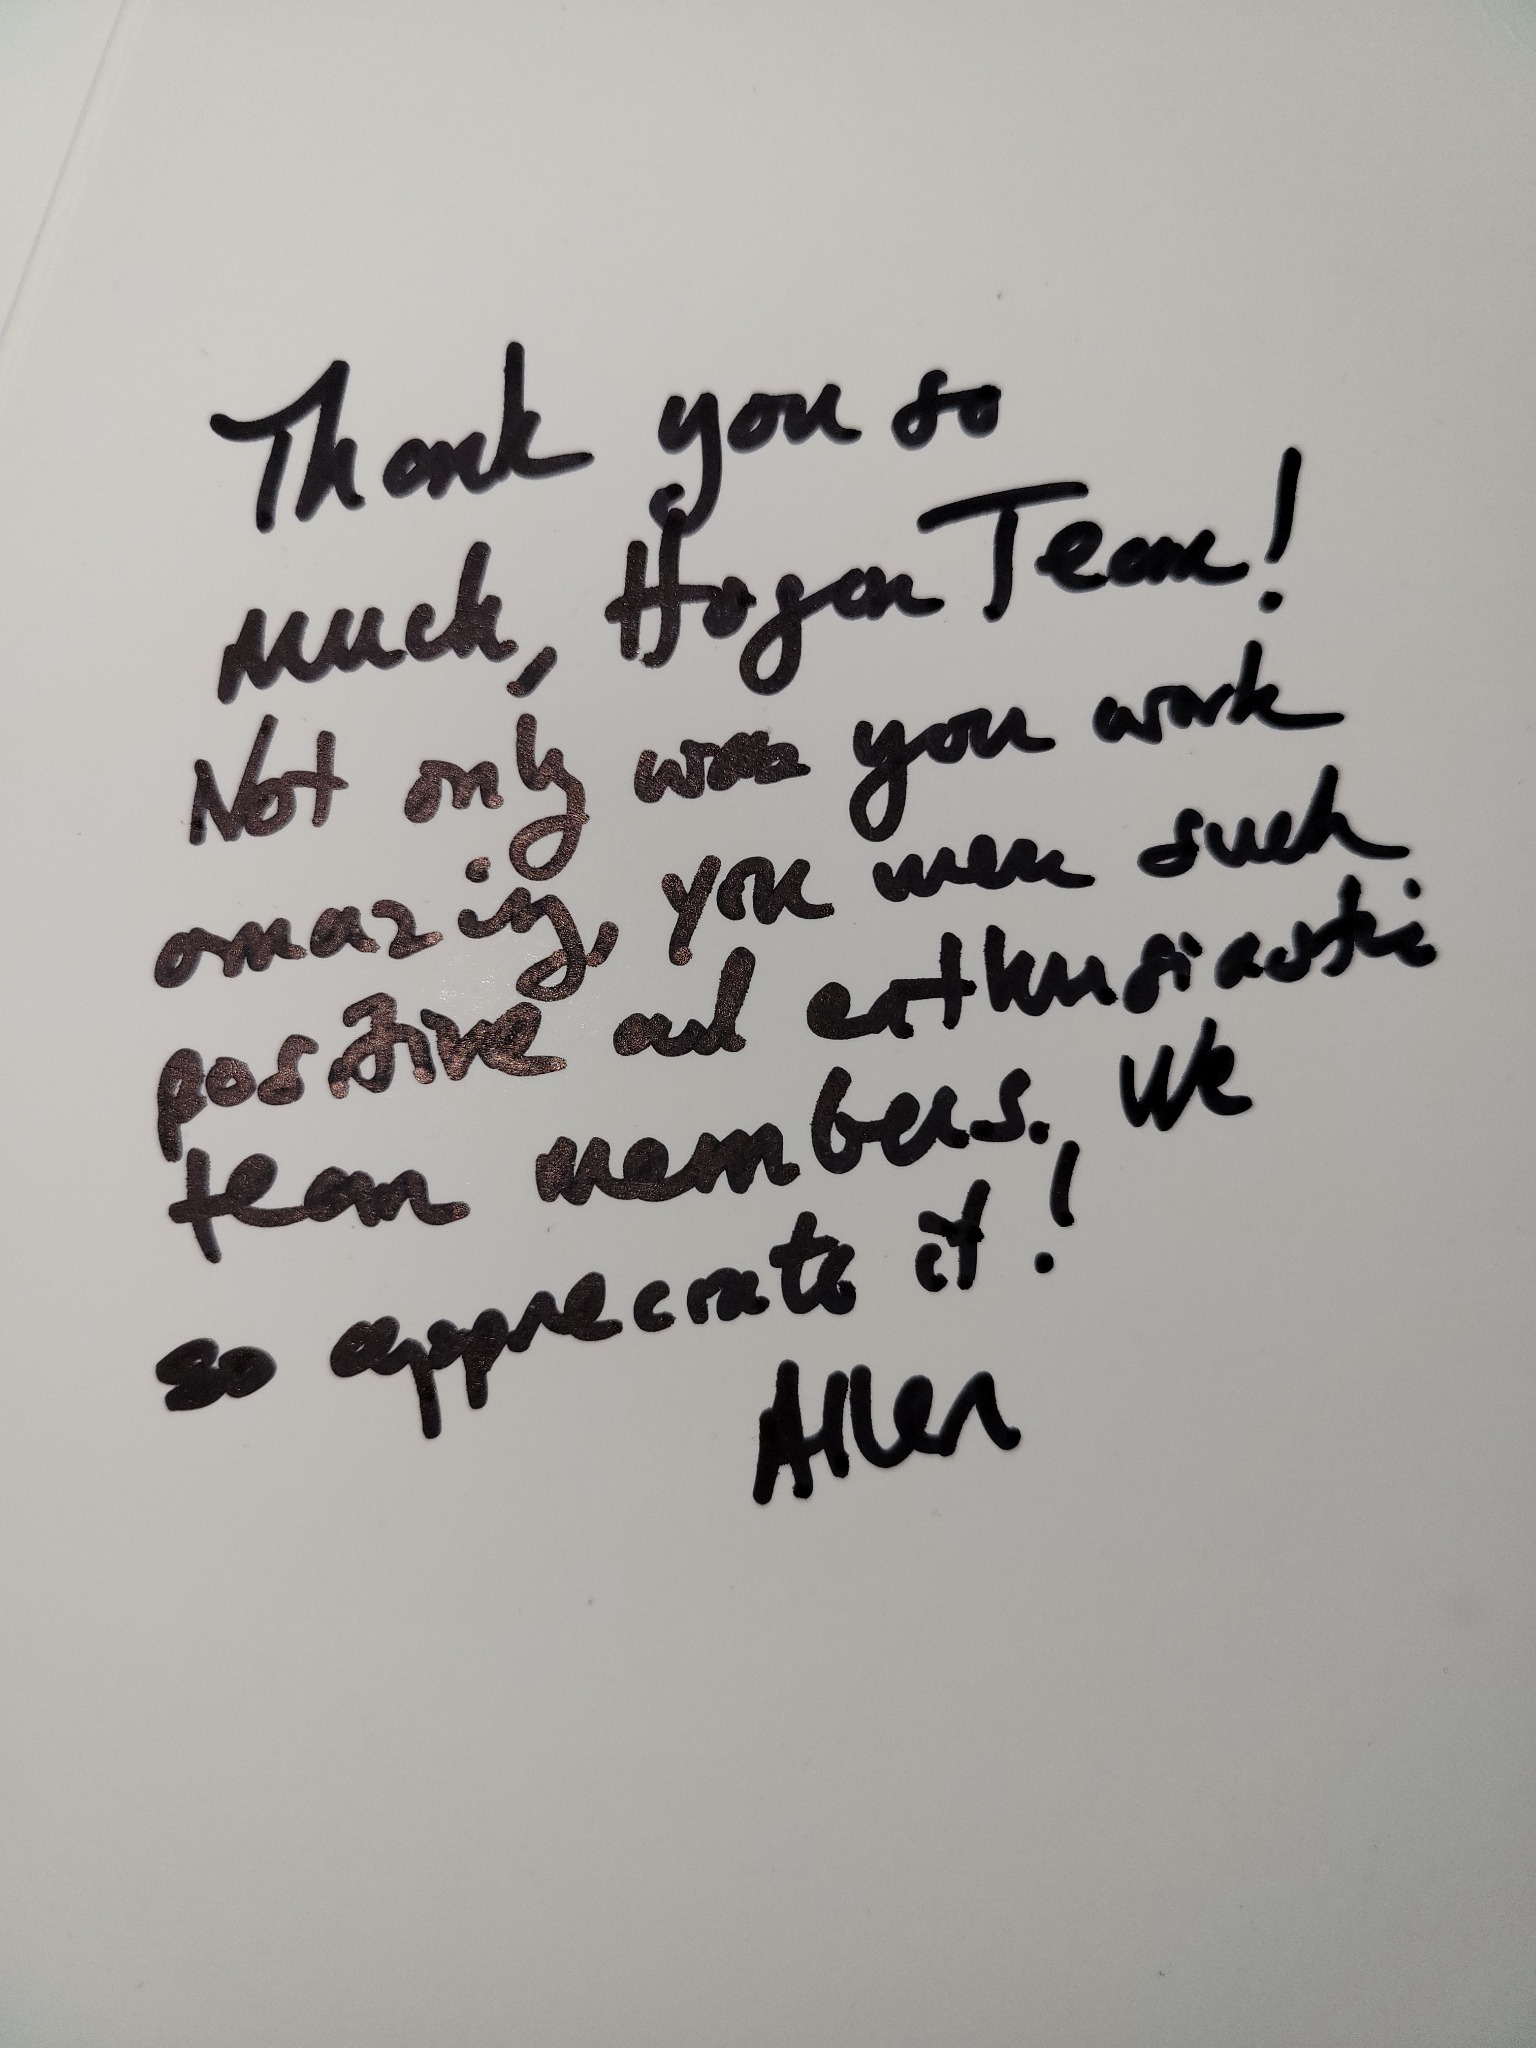 Thank you so
much, Hogan Team!
Not only was you work
amazing, you were such
positive and enthusiastic
team members. We
so appreciate it!
Allen